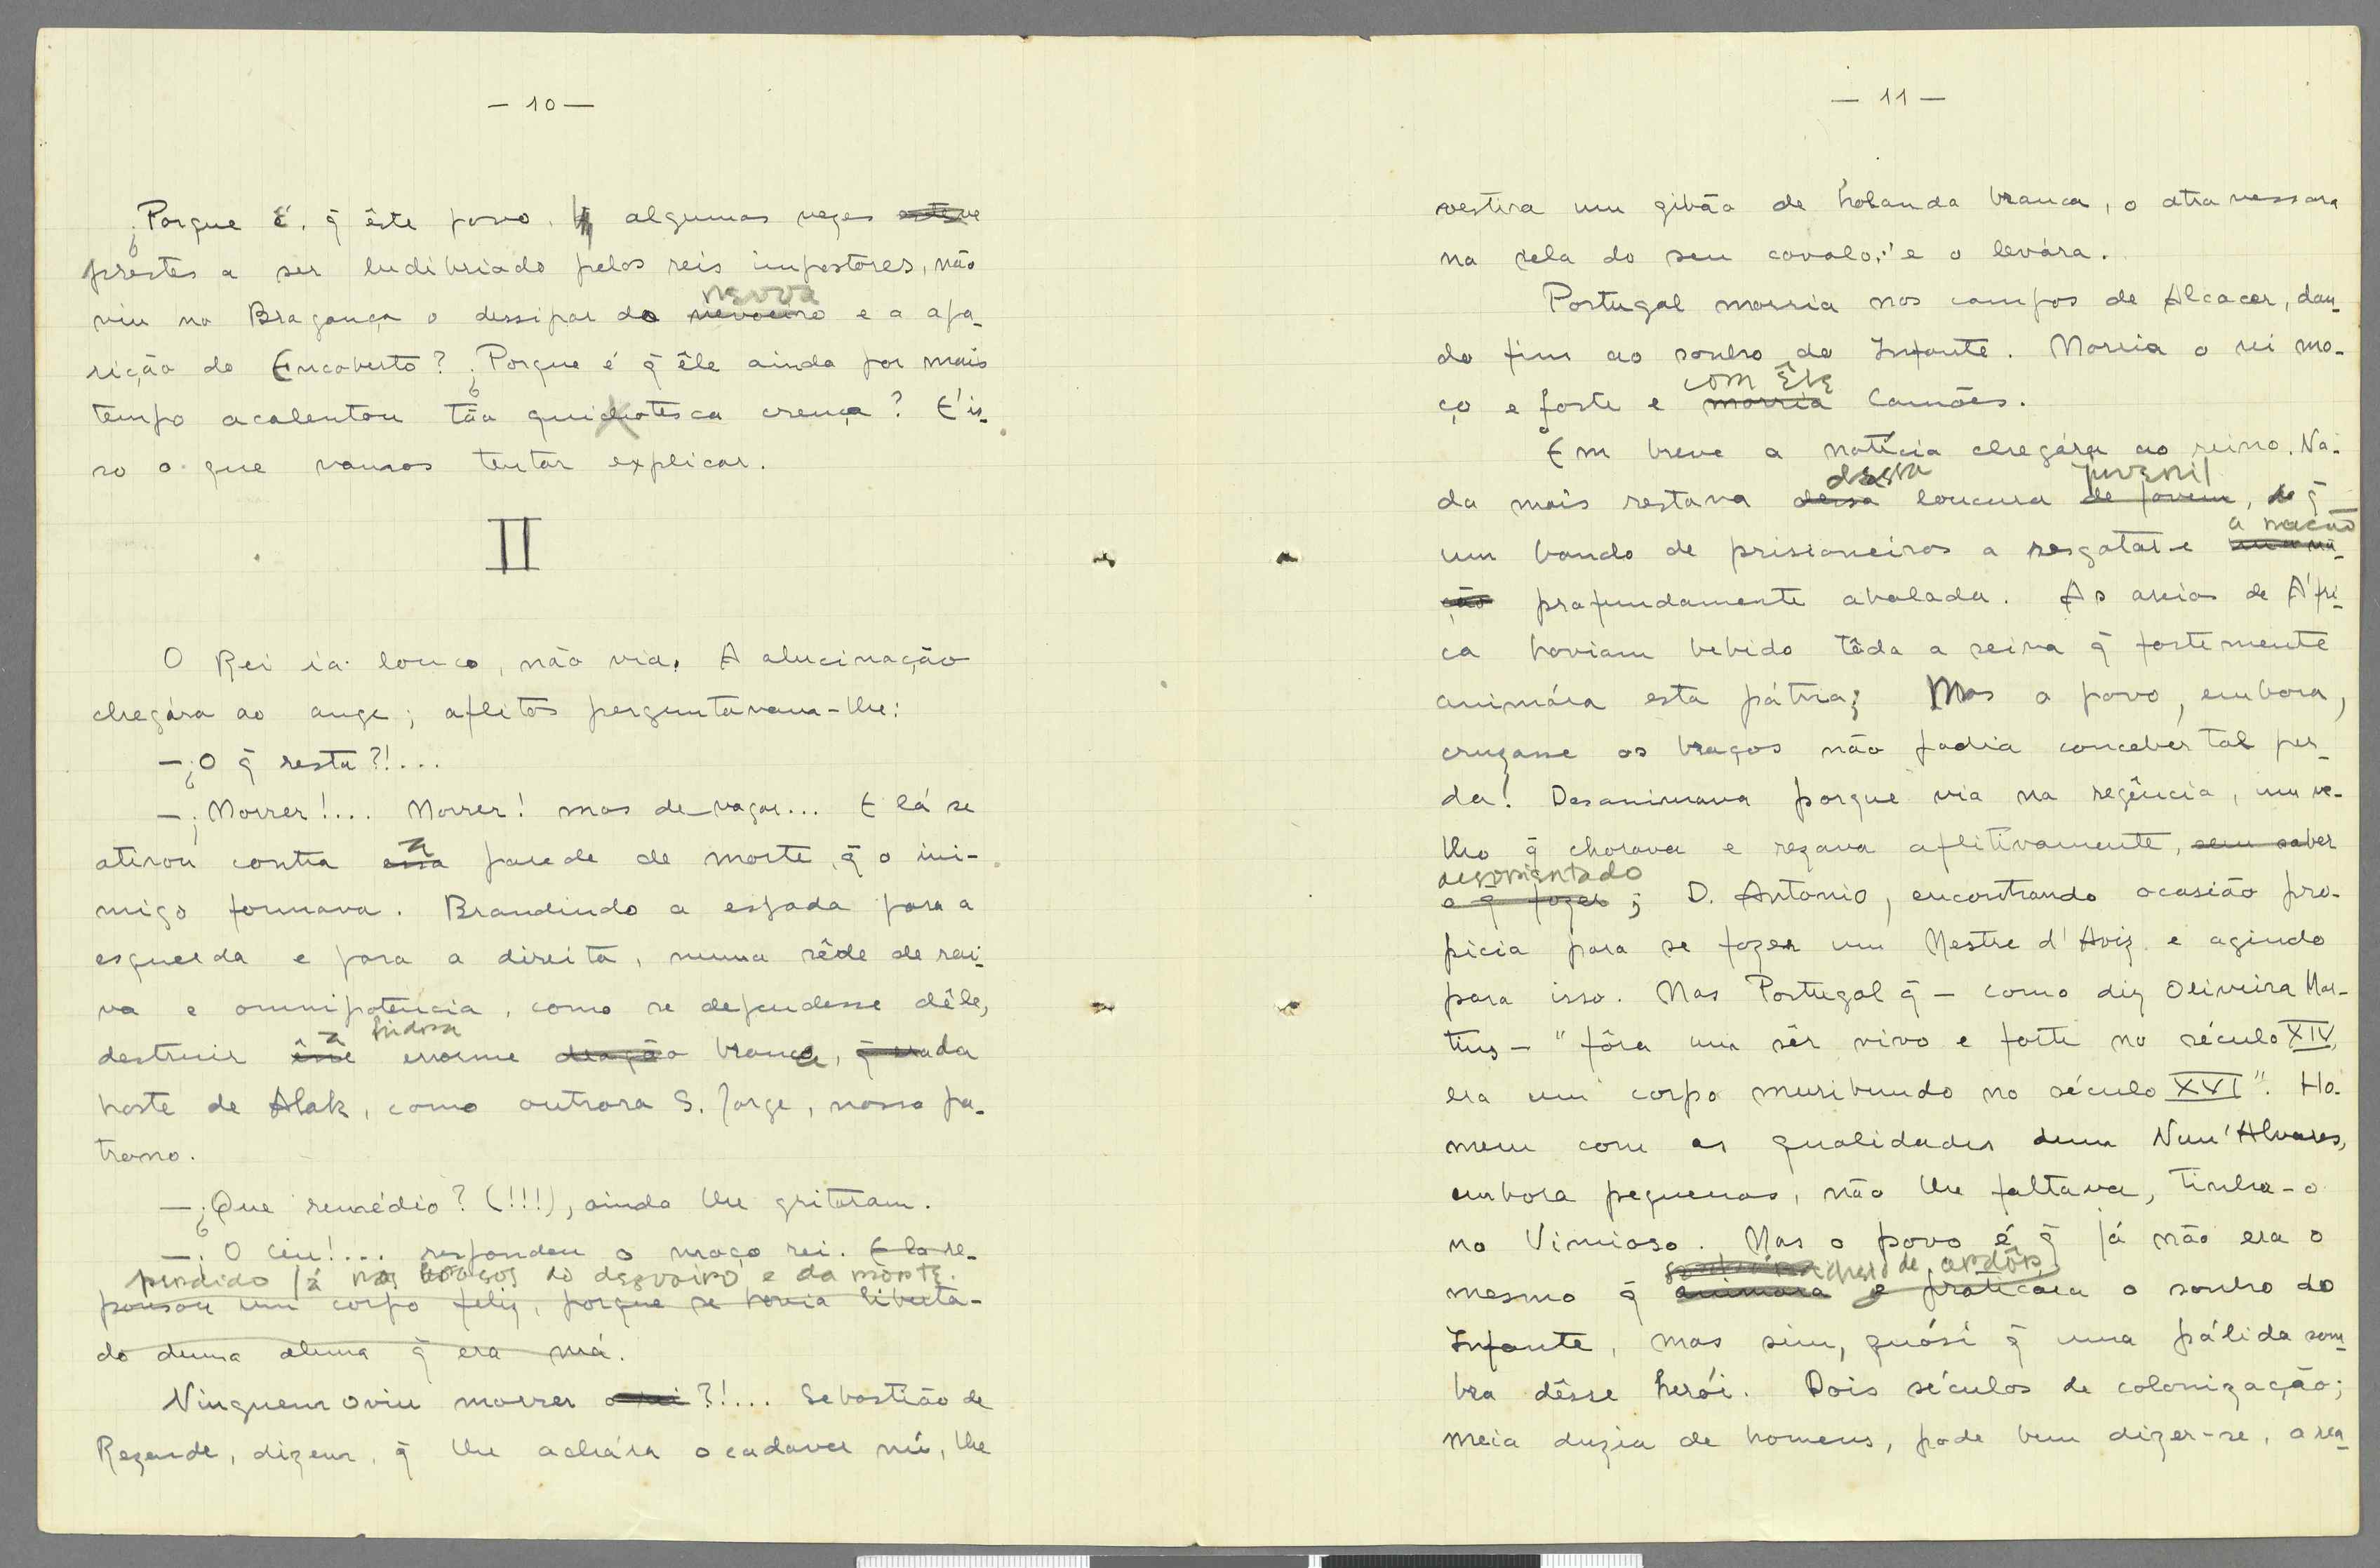 — 10 —
¿Porque é q̃ êste povo, q̃ algumas vezes esteve
prestes a ser ludibriado pelos reis impostores, não
nevoa
viu no Bragança o dessipar da nevoeiro e a apa-
rição do Encoberto? ¿Porque é q̃ êle ainda por mais
tempo acalentou tão quichotesca crença? E'is-
so o que vamos tentar explicar.
II
O Rei ia louco, não via. A alucinação
chegára ao auge; aflitos perguntavam-lhe:
— ¿O q̃ resta?!...
— ¡Morrer!... Morrer! mas devagar... E lá se
a
atirou contra essa parede de morte, q̃ o ini-
migo formava. Brandindo a espada para a
esquerda e para a direita, numa sêde de rai-
va e omnipotencia, como se dependesse dêle,
a hidra
destruir êsse enorme dragão branca, q̃ era da
hoste de Alak, como outrora S. Jorge, nosso pa-
trono.
— ¿Que remédio? (!!!), ainda lhe gritaram.
— ¡O Ceu!... respondeu o moço rei. E lo re-
perdido já nos braços do desvairo e da morte.
pousou um corpo feliz, porque se havia liberta-
do duma alma q̃ era má.
Ninguem o viu morrer o rei?!... Sebastião de
Rezende, dizem, q̃ lhe achára o cadaver nú, lhe
— 11 —
vestira um gibão de holanda branca, o atravessara
na sela do seu cavalo, e o levára.
Portugal morria nos campos de Alcacer, dan-
do fim ao sonho do Infante. Morria o rei mo-
com êle
ço e forte e morria Camões.
Em breve a notícia chegára ao reino. Na-
dessa juvenil
da mais restava dessa loucura de jovem, do q̃
a nação
um bando de prisioneiros a resgatar e uma na-
ção profundamente abalada. As areias de Áfri-
ca haviam bebido tôda a seiva q̃ fortemente
animára esta pátria; Mas o povo, embora,
cruzasse os braços não podia conceber tal per-
da! Desanimava porque via na regência, um ve-
lho q̃ chorava e rezava aflitivamente, sem saber
desorientado
o q̃ fazer; D. Antonio, encontrando ocasião pro-
picia para se fazer um Mestre d'Aviz e agindo
para isso. Mas Portugal q̃ — como diz Oliveira Mar-
tins — "fôra um sêr vivo e forte no século XIV,
era um corpo muribundo no século XVI". Ho-
mem com as qualidades dum Nun'Alvares,
embora pequenas, não lhe faltava, tinha-o
no Vimioso. Mas o povo é q̃ já não era o
cheio de ardôr,
mesmo q̃ animara e praticara o sonho do
Infante, mas sim, quási q̃ uma pálida som-
bra dêsse herói. Dois séculos de colonização;
meia duzia de homens, pode bem dizer-se, a rea-